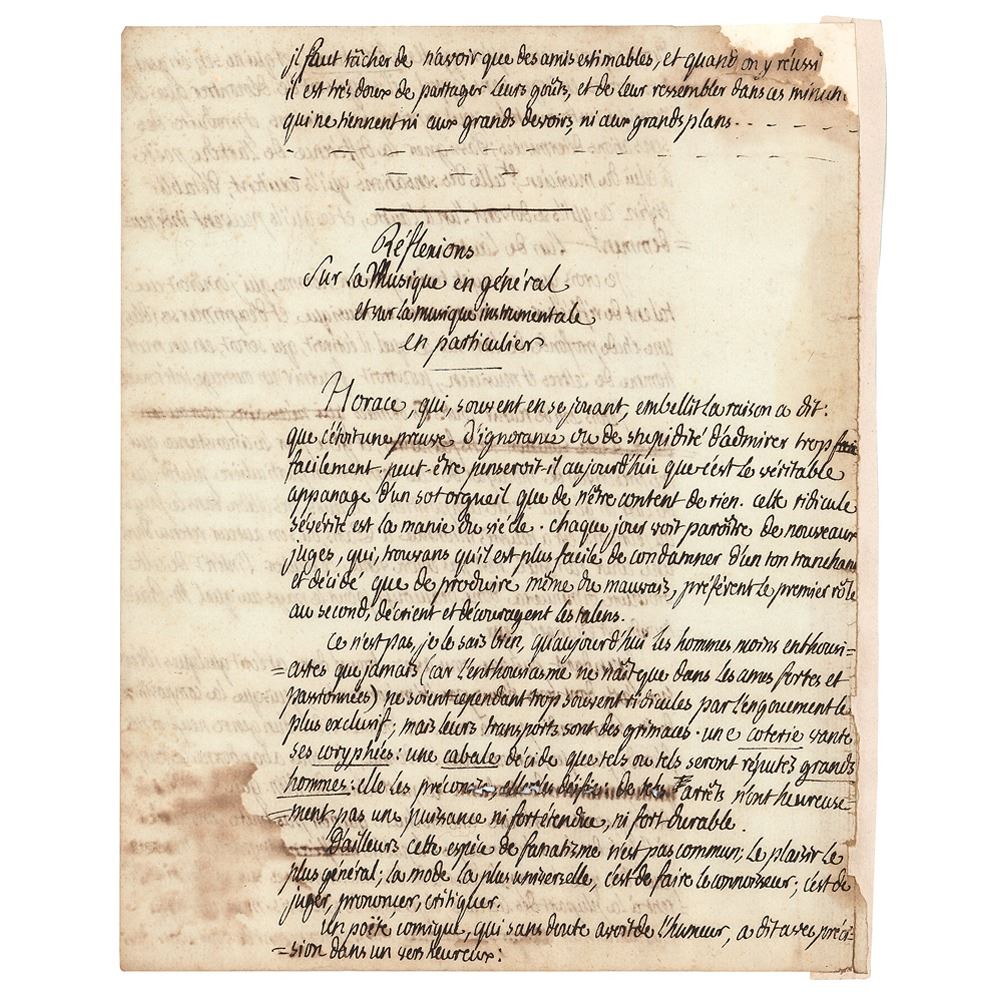 il faut tâcher de n'avoir que des amis estimables, et quand on y réussi
il est très doux de partager leurs goûts, et de leur ressembler dans ces minuti
qui ne tiennent ni aux grands devoirs, ni aux grands plans. - - - - -
Réflexions
Sur la Musique en général
et sur la musique instrumentale
en particulier
Horace, qui, souvent en se jouant, embellit la raison a dit:
que c'étoit une preuve d'ignorance ou de stupidité d'admirer trop
facilement. peut-être penseroit-il aujourd'hui que c'est le véritable
appanage d'un sot orgueil que de n'être content de rien. cette ridicule
sévérité est la manie du siécle. chaque jour voit paroître de nouveaux
juges, qui, trouvans qu'il est plus facile de condamner d'un ton tranchant
et décidé que de produire même du mauvais, préférent le premier rôle
au second, décrient et découragent les talens.
Ce n'est pas, je le sais bien, qu'aujourd'hui les hommes moins enthousi=
=astes que jamais (car l'enthousiasme ne naît que dans les ames fortes et
passionnées) ne soient cependant trop souvent ridicules par l'engouement le
plus exclusif; mais leurs transports sont des grimaces. une coterie vante
ses coryphées: une cabale décide que tels ou tels seront réputés grands
hommes: elle les préconise, de tels arrêts n'ont heureuse
=ment pas une puissance ni fort étendue, ni fort durable.
D'ailleurs cette espèce de fanatizme n'est pas commun; le plaisir le
plus général; la mode la plus universelle, c'est de faire le connoisseur; c'est de
juger, prononcer, critiquer.
Un poëte comique, qui sans doute avoit de l'humeur, a dit avec préci=
=sion dans un vers heureux: